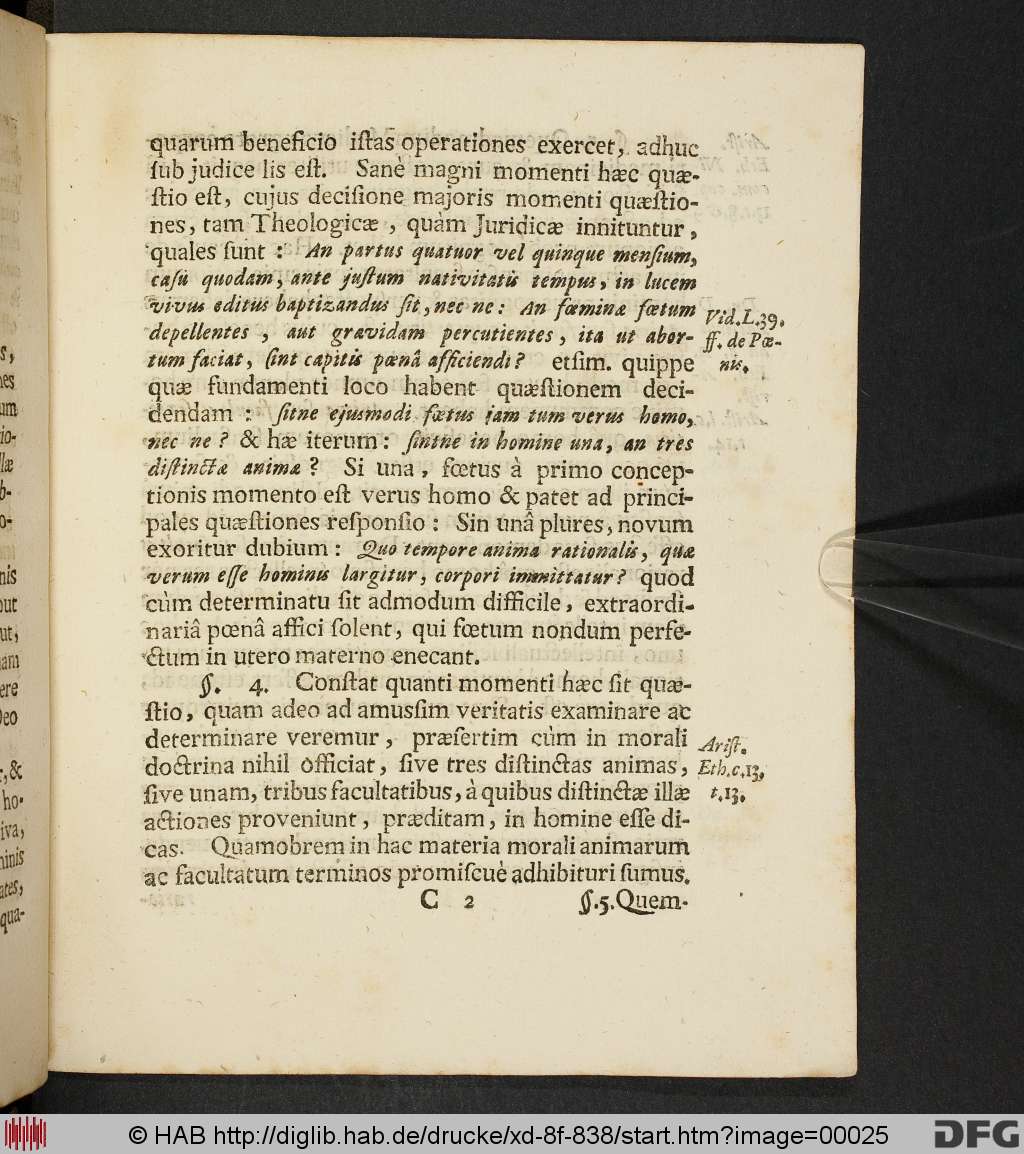 quarum beneficio iſtas operationes exercet, adhuc
ſub judice lis eſt. Sanè magni momenti hæc quæ-
ſtio eſt, cujus deciſione majoris momenti quæſtio-
nes, tam Theologicæ, quàm Juridicæ innituntur,
quales ſunt: An partus quatuor vel quinque menſium,
caſu quodam, ante juſtum nativitatis tempus, in lucem
vivus editus baptizandus ſit, nec ne: An fœminæ fœtum
depellentes, aut gravidam percutientes, ita ut abor-
tum faciat, ſint capitis pœnâ afficiendi? etſim. quippe
quæ fundamenti loco habent quæſtionem deci-
dendam: ſitne ejusmodi fœtus jam tum verus homo,
nec ne? & hæ iterum: ſintne in homine una, an tres
diſtinctæ animæ? Si una, fœtus à primo concep-
tionis momento eſt verus homo & patet ad princi-
pales quæſtiones reſponſio: Sin unâ plures, novum
exoritur dubium: Quo tempore anima rationalis, quæ
verum eſſe hominis largitur, corpori immittatur? quod
cùm determinatu ſit admodum difficile, extraordi-
nariâ pœnâ affici ſolent, qui fœtum nondum perfe-
ctum in utero materno enecant.
§. 4. Conſtat quanti momenti hæc ſit quæ-
ſtio, quam adeo ad amusſim veritatis examinare ac
determinare veremur, præſertim cùm in morali
doctrina nihil officiat, ſive tres diſtinctas animas,
ſive unam, tribus facultatibus, à quibus diſtinctæ illæ
actiones proveniunt, præditam, in homine eſſe di-
cas. Quamobrem in hac materia morali animarum
ac facultatum terminos promiſcuè adhibituri ſumus.
C 2 §.5. Quem-
Vid. L. 39.
ff. de Pœ-
nis.
Ariſt.
Eth. c. 13.
t. 13.
© HAB http://diglib.hab.de/drucke/xd-8f-838/start.htm?image=00025
DFG